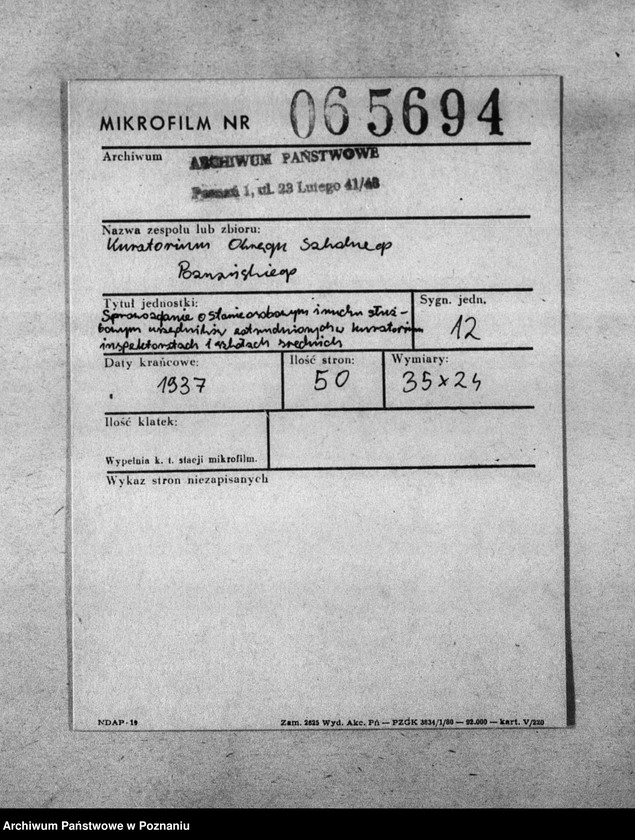 MIKROFILM NR 065694
Archiwum
ARCHIWUM PAŃSTWOWE
Poznań 1, ul. 23 Lutego 41/43
Nazwa zespołu lub zbioru:
Kuratorium Okręgu Szkolnego
Poznańskiego
Tytuł jednostki:
Sprawozdanie o stanie osobowym i ruchu służ-
bowym urzędników zatrudnionych w kuratorium
inspektoratach i szkołach średnich
Sygn. jedn.
12
Daty krańcowe:
1937
Ilość stron:
50
Wymiary:
35x24
Ilość klatek:
Wypełnia k. t. stacji mikrofilm.
Wykaz stron niezapisanych
NDAP-19
Zam. 2625 Wyd. Akc. Pń — PZGK 3634/1/80 — 92.000 — kart. V/220
Archiwum Państwowe w Poznaniu